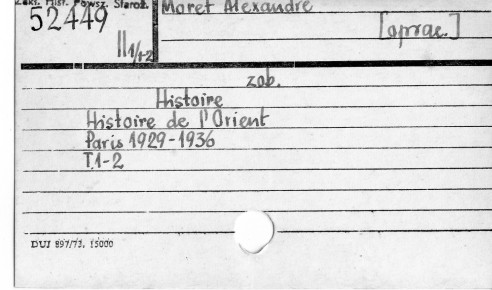 Zakł. Hist. Powsz. Staroż.
Moret Alexandre
52449
[oprac.]
II 1/1+2
zob.
Histoire
Histoire de l'Orient
Paris 1929-1936
T.1-2
DUJ 897/73. 15000